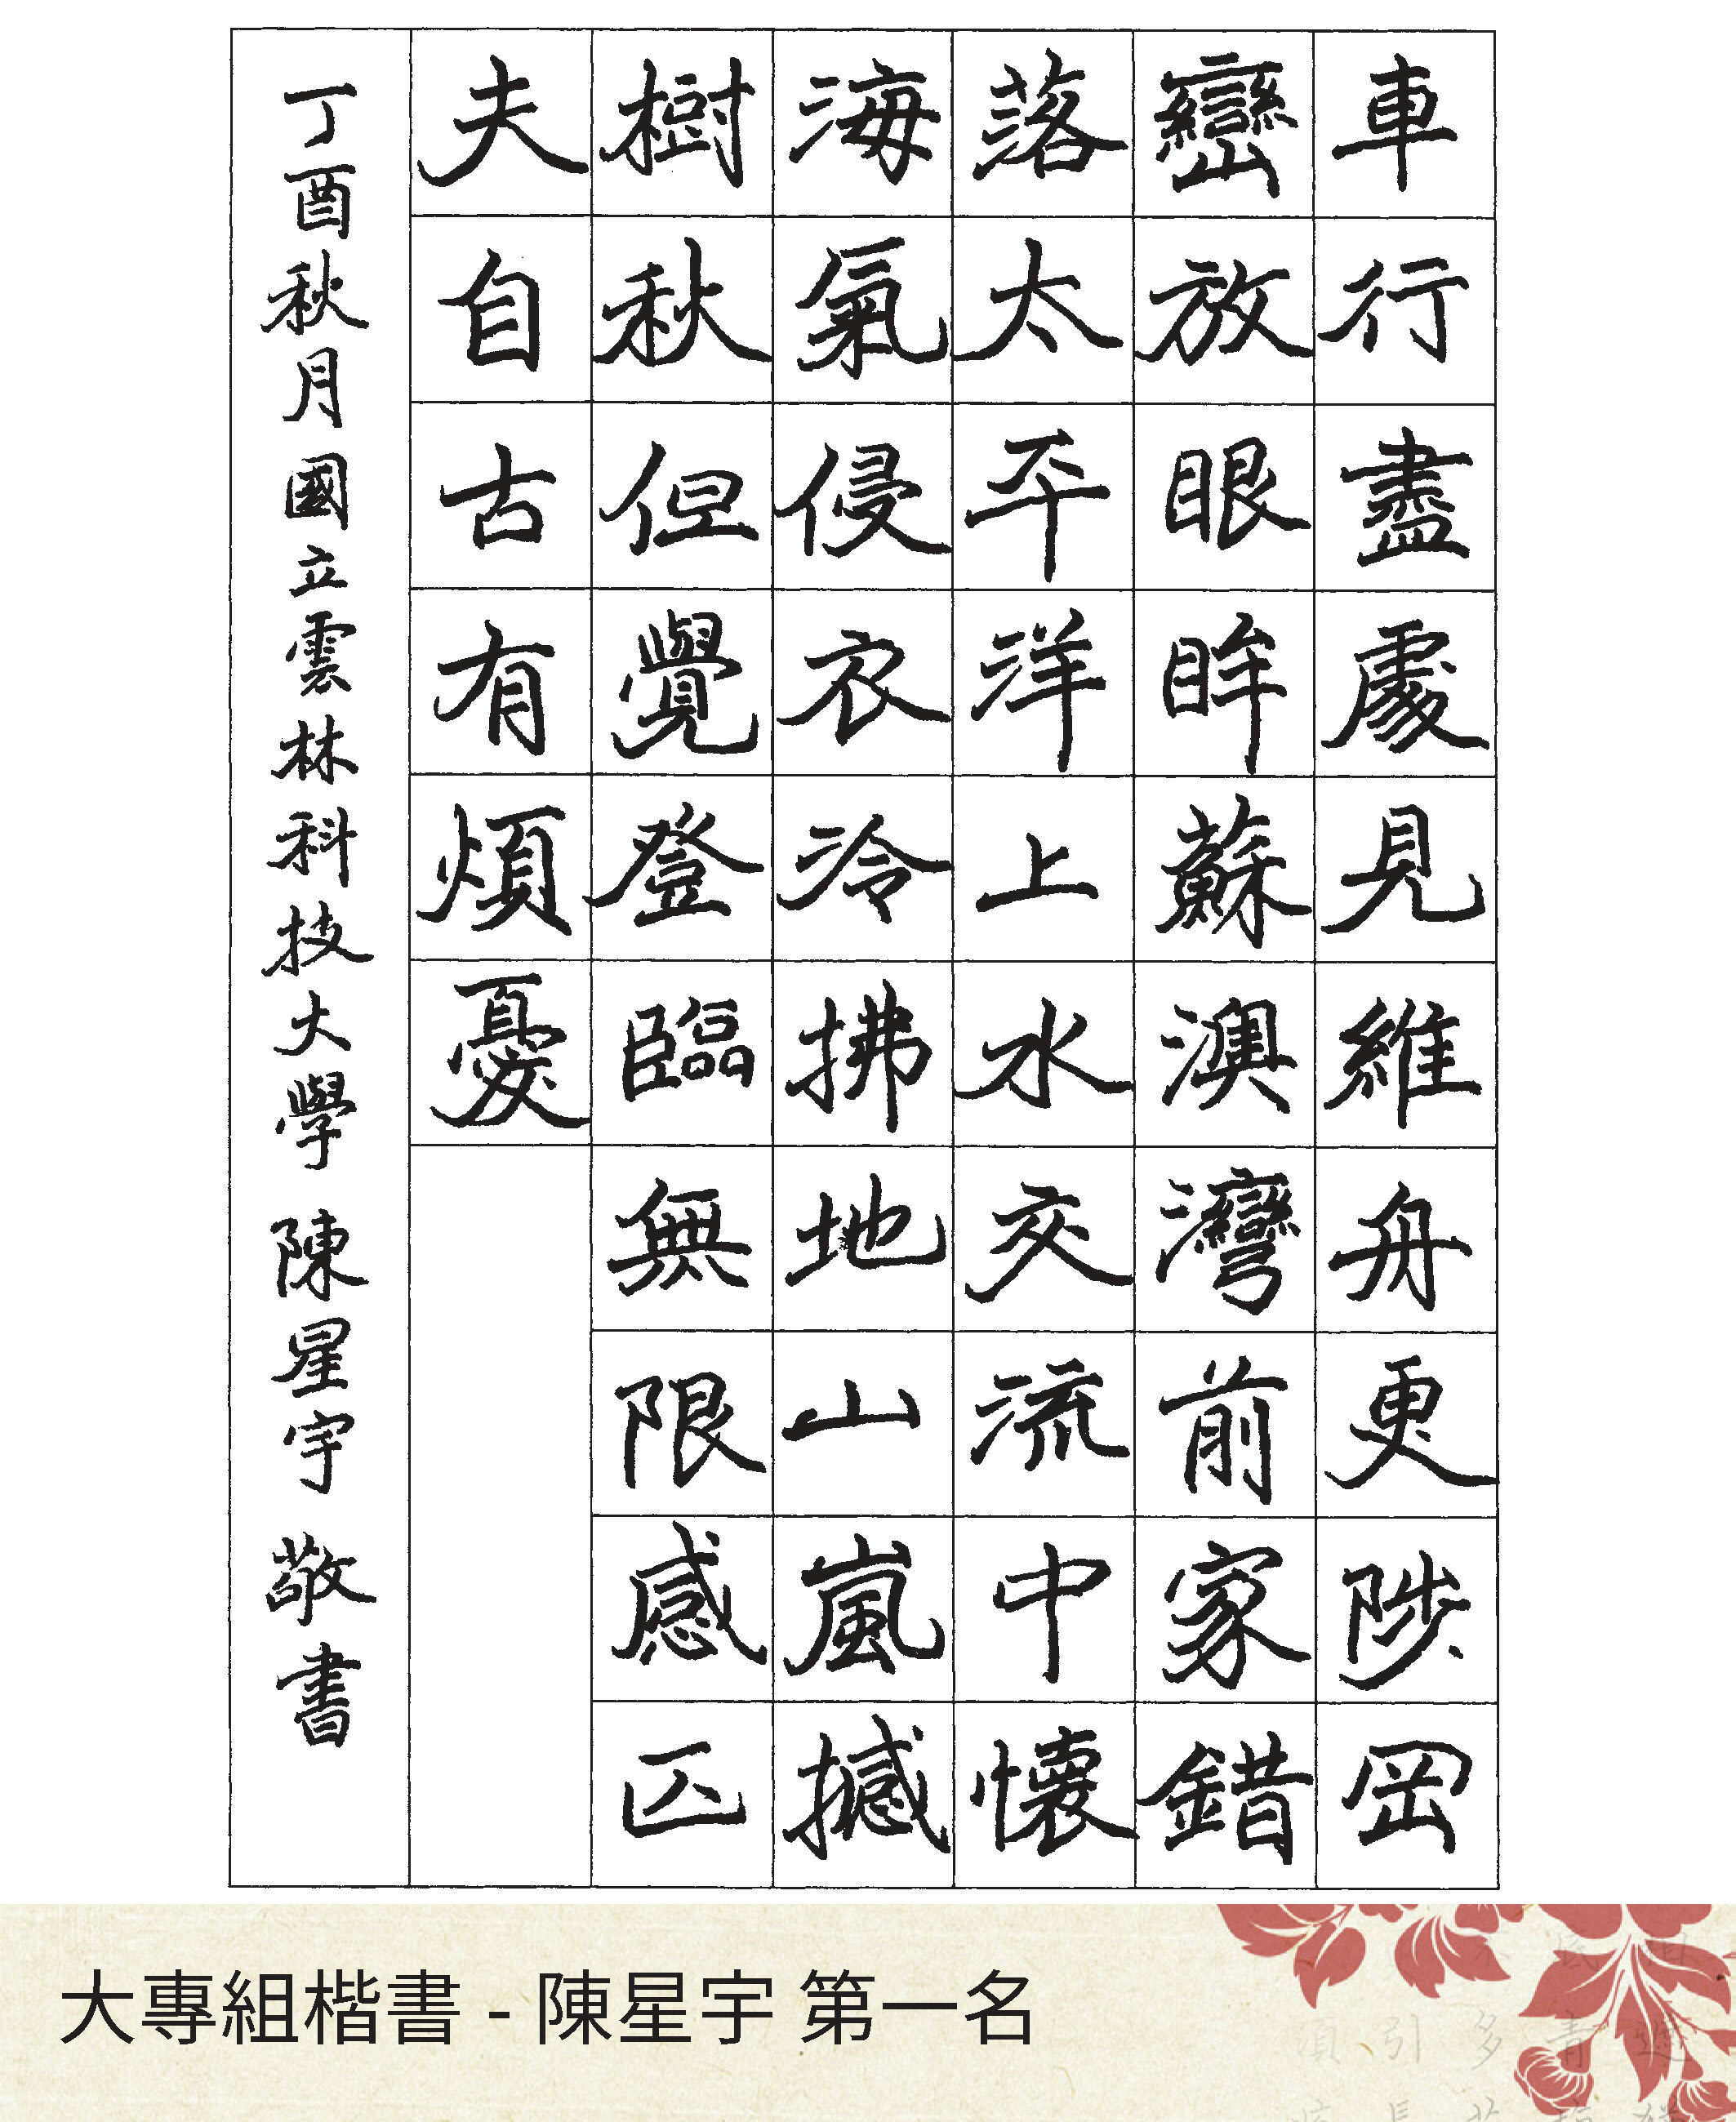 車行盡處見維舟更陟岡
巒放眼眸蘇澳灣前家錯
落太平洋上水交流中懷
海氣侵衣泠拂地山嵐撼
樹秋但覺登臨無限感匹
夫自古有煩憂
丁酉秋月國立雲林科技大學 陳星宇 敬書
大專組楷書 - 陳星宇 第一名